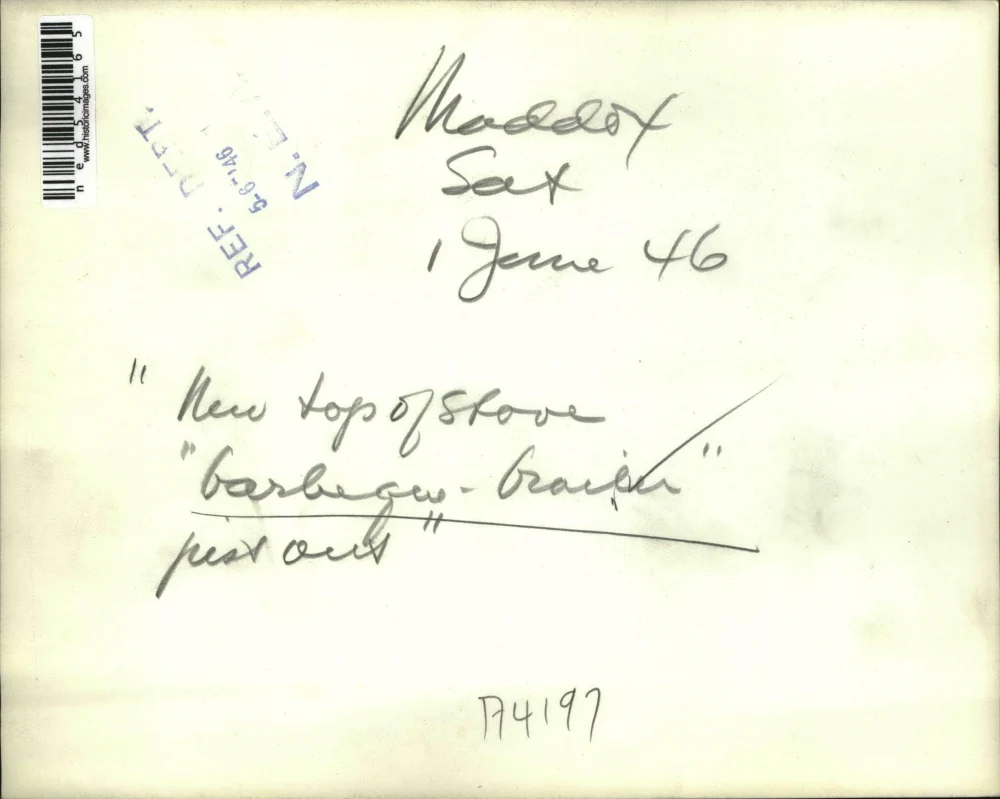 ned54165
www.historicimages.com
REF. DEPT.
5-6-46
N.E.A.
Maddox
Sat
1 June 46
" New top of stove
"barbecue - broiler"
just out"
A4197